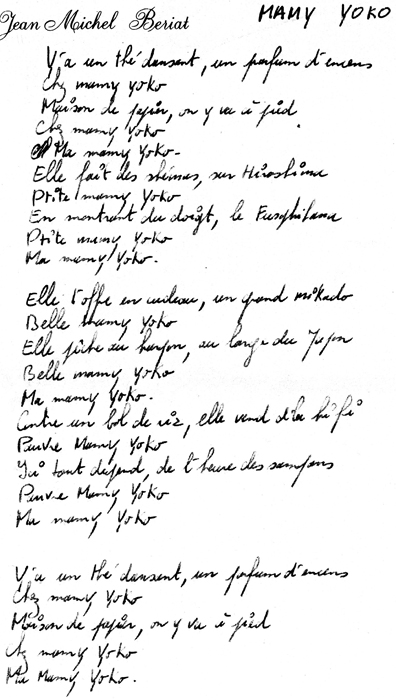 Jean Michel Beriat
MAMY YOKO
Y'a un thé dansant, un parfum d'encens
Chez mamy Yoko
Maison de papier, on y va à pied
Chez mamy Yoko
Ma mamy Yoko.
Elle fait des shémas, sur Hiroshima
Ptite mamy Yoko
En montrant du doigt, le Fusyhilama
Ptite mamy Yoko
Ma mamy Yoko.
Elle t'offre en cadeau, un grand mikado
Belle mamy Yoko
Elle pêche au harpon, au large du Japon
Belle mamy Yoko
Ma mamy Yoko.
Contre un bol de riz, elle vend d'la hi fi
Pauvre Mamy Yoko
Ici tout dépend, de l'heure des sampans
Pauvre Mamy Yoko
Ma mamy Yoko.
Y'a un thé dansant, un parfum d'encens
Chez mamy Yoko
Maison de papier, on y va à pied
Chez mamy Yoko
Ma Mamy Yoko.